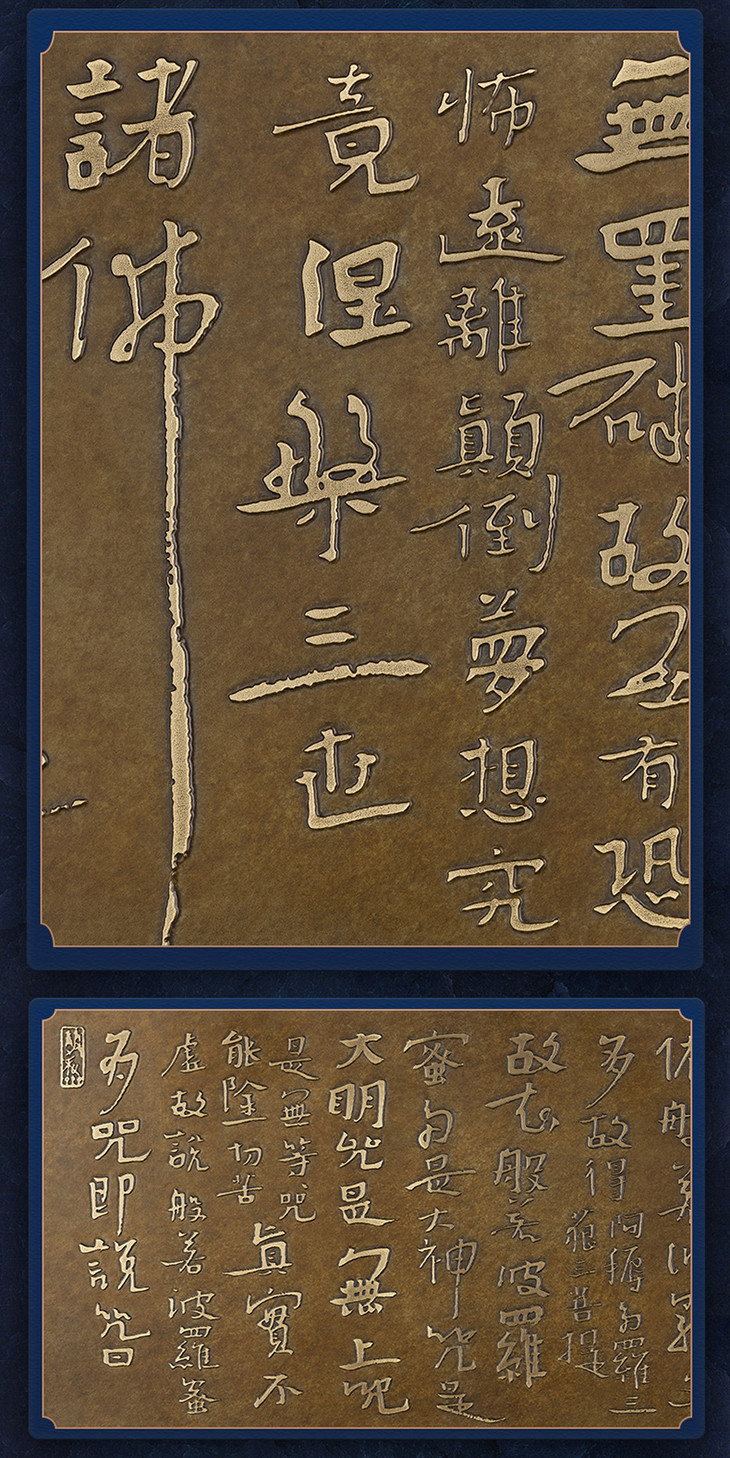 無罣礙故无有恐
怖遠離顛倒夢想究
竟涅槃三世
諸佛
依般若波羅
多故得阿耨多羅三
藐三菩提
故知般若波羅
蜜多是大神咒是
大明咒是無上咒
是無等咒
能除一切苦
真實不
虛故說般若波羅蜜
多咒即說咒曰